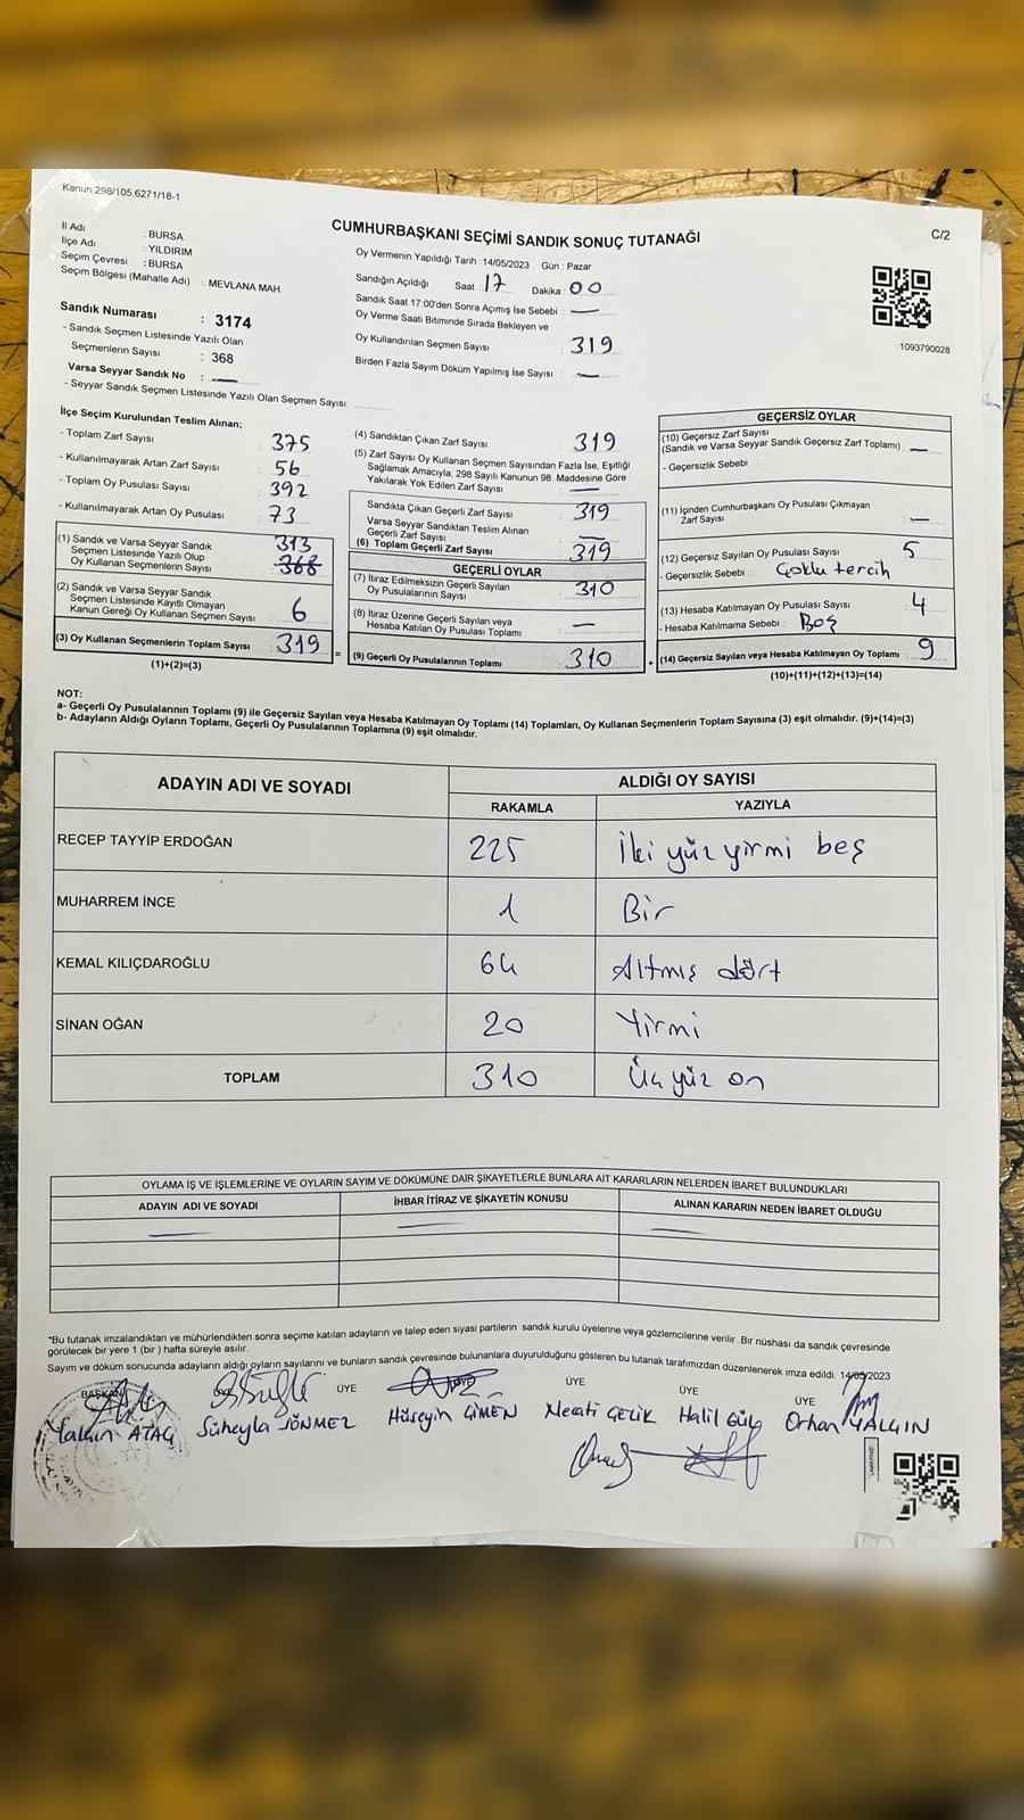 Kanun 298/105,6271/18-1
CUMHURBAŞKANI SEÇİMİ SANDIK SONUÇ TUTANAĞI
C/2
İl Adı : BURSA
İlçe Adı : YILDIRIM
Seçim Çevresi : BURSA
Seçim Bölgesi (Mahalle Adı) : MEVLANA MAH.
Sandık Numarası : 3174
- Sandık Seçmen Listesinde Yazılı Olan
Seçmenlerin Sayısı : 368
Varsa Seyyar Sandık No : —
- Seyyar Sandık Seçmen Listesinde Yazılı Olan Seçmen Sayısı
Oy Vermenin Yapıldığı Tarih : 14/05/2023 Gün : Pazar
Sandığın Açıldığı Saat 17 Dakika : 00
Sandık Saat 17:00'den Sonra Açımış İse Sebebi : —
Oy Verme Saati Bitiminde Sırada Bekleyen ve
Oy Kullandırılan Seçmen Sayısı 319
Birden Fazla Sayım Döküm Yapılmış İse Sayısı —
1093790028
İlçe Seçim Kurulundan Teslim Alınan;
- Toplam Zarf Sayısı : 375
- Kullanılmayarak Artan Zarf Sayısı : 56
- Toplam Oy Pusulası Sayısı : 392
- Kullanılmayarak Artan Oy Pusulası : 73
(1) Sandık ve Varsa Seyyar Sandık
Seçmen Listesinde Yazılı Olup
Oy Kullanan Seçmenlerin Sayısı 313 368
(2) Sandık ve Varsa Seyyar Sandık
Seçmen Listesinde Kayıtlı Olmayan
Kanun Gereği Oy Kullanan Seçmen Sayısı 6
(3) Oy Kullanan Seçmenlerin Toplam Sayısı 319
(1)+(2)=(3)
(4) Sandıktan Çıkan Zarf Sayısı 319
(5) Zarf Sayısı Oy Kullanan Seçmen Sayısından Fazla İse, Eşitliği
Sağlamak Amacıyla, 298 Sayılı Kanunun 98. Maddesine Göre
Yakılarak Yok Edilen Zarf Sayısı —
Sandıkta Çıkan Geçerli Zarf Sayısı 319
Varsa Seyyar Sandıktan Teslim Alınan
Geçerli Zarf Sayısı —
(6) Toplam Geçerli Zarf Sayısı 319
GEÇERLİ OYLAR
(7) İtiraz Edilmeksizin Geçerli Sayılan
Oy Pusulalarının Sayısı 310
(8) İtiraz Üzerine Geçerli Sayılan veya
Hesaba Katılan Oy Pusulası Toplamı —
(9) Geçerli Oy Pusulalarının Toplamı 310
GEÇERSİZ OYLAR
(10) Geçersiz Zarf Sayısı
(Sandık ve Varsa Seyyar Sandık Geçersiz Zarf Toplamı) —
- Geçersizlik Sebebi
(11) İçinden Cumhurbaşkanı Oy Pusulası Çıkmayan
Zarf Sayısı —
(12) Geçersiz Sayılan Oy Pusulası Sayısı 5
- Geçersizlik Sebebi Çoklu tercih
(13) Hesaba Katılmayan Oy Pusulası Sayısı 4
- Hesaba Katılmama Sebebi : Boş
(14) Geçersiz Sayılan veya Hesaba Katılmayan Oy Toplamı 9
(10)+(11)+(12)+(13)=(14)
NOT:
a- Geçerli Oy Pusulalarının Toplamı (9) ile Geçersiz Sayılan veya Hesaba Katılmayan Oy Toplamı (14) Toplamları, Oy Kullanan Seçmenlerin Toplam Sayısına (3) eşit olmalıdır. (9)+(14)=(3)
b- Adayların Aldığı Oyların Toplamı, Geçerli Oy Pusulalarının Toplamına (9) eşit olmalıdır.
ADAYIN ADI VE SOYADI ALDIĞI OY SAYISI
RAKAMLA YAZIYLA
RECEP TAYYİP ERDOĞAN 225 İki yüz yirmi beş
MUHARREM İNCE 1 Bir
KEMAL KILIÇDAROĞLU 64 Altmış dört
SİNAN OĞAN 20 Yirmi
TOPLAM 310 Üç yüz on
OYLAMA İŞ VE İŞLEMLERİNE VE OYLARIN SAYIM VE DÖKÜMÜNE DAİR ŞİKAYETLERLE BUNLARA AİT KARARLARIN NELERDEN İBARET BULUNDUKLARI
ADAYIN ADI VE SOYADI İHBAR İTİRAZ VE ŞİKAYETİN KONUSU ALINAN KARARIN NEDEN İBARET OLDUĞU
— — —
*Bu tutanak imzalandıktan ve mühürlendikten sonra seçime katılan adayların ve talep eden siyasi partilerin sandık kurulu üyelerine veya gözlemcilerine verilir. Bir nüshası da sandık çevresinde
görülecek bir yere 1 (bir) hafta süreyle asılır.
Sayım ve döküm sonucunda adayların aldığı oyların sayılarını ve bunların sandık çevresinde bulunanlara duyurulduğunu gösteren bu tutanak tarafımızdan düzenlenerek imza edildi. 14/05/2023
BAŞKAN ÜYE ÜYE ÜYE ÜYE
Yalçın ATAÇ Süheyla SÖNMEZ Hüseyin ÇİMEN Necati ÇELİK Halil GÜÇ Orhan YALÇIN